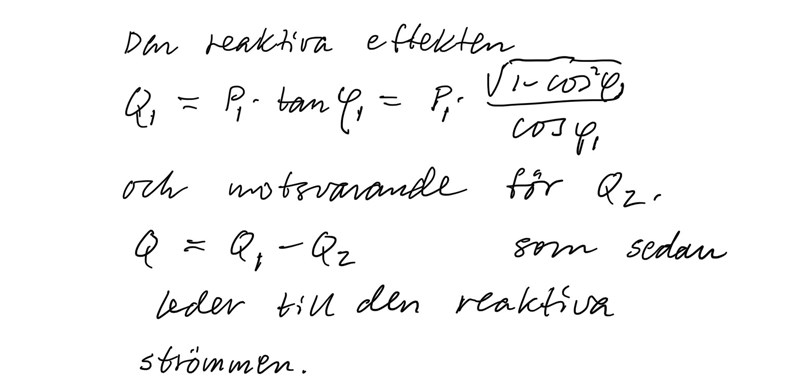 Den reaktiva effekten
Q₁ = P₁ · tan φ₁ = P₁ · √(1 - cos²φ₁) / cos φ₁
och motsvarande för Q₂.
Q = Q₁ - Q₂ som sedan
leder till den reaktiva
strömmen.